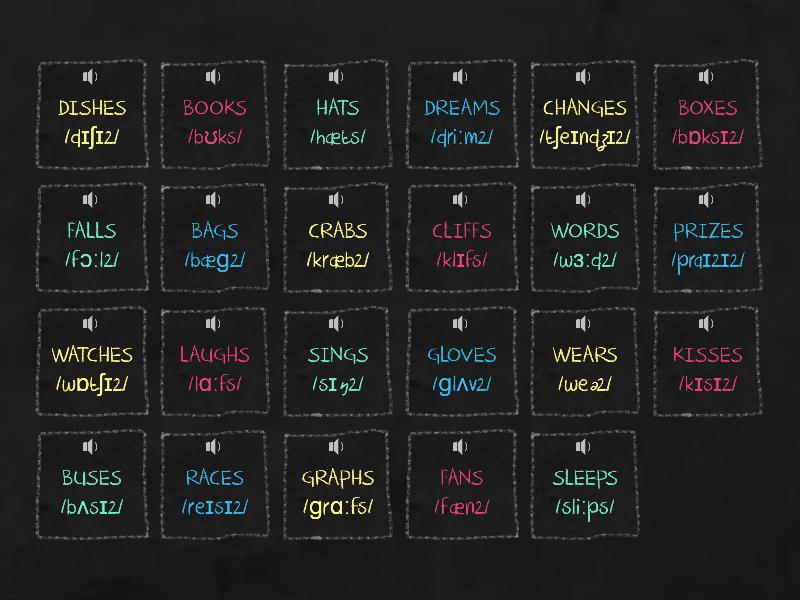 DISHES
/dɪʃɪz/
BOOKS
/bʊks/
HATS
/hæts/
DREAMS
/driːmz/
CHANGES
/tʃeɪndʒɪz/
BOXES
/bɒksɪz/
FALLS
/fɔːlz/
BAGS
/bæɡz/
CRABS
/kræbz/
CLIFFS
/klɪfs/
WORDS
/wɜːdz/
PRIZES
/praɪzɪz/
WATCHES
/wɒtʃɪz/
LAUGHS
/lɑːfs/
SINGS
/sɪŋz/
GLOVES
/ɡlʌvz/
WEARS
/weəz/
KISSES
/kɪsɪz/
BUSES
/bʌsɪz/
RACES
/reɪsɪz/
GRAPHS
/ɡrɑːfs/
FANS
/fænz/
SLEEPS
/sliːps/